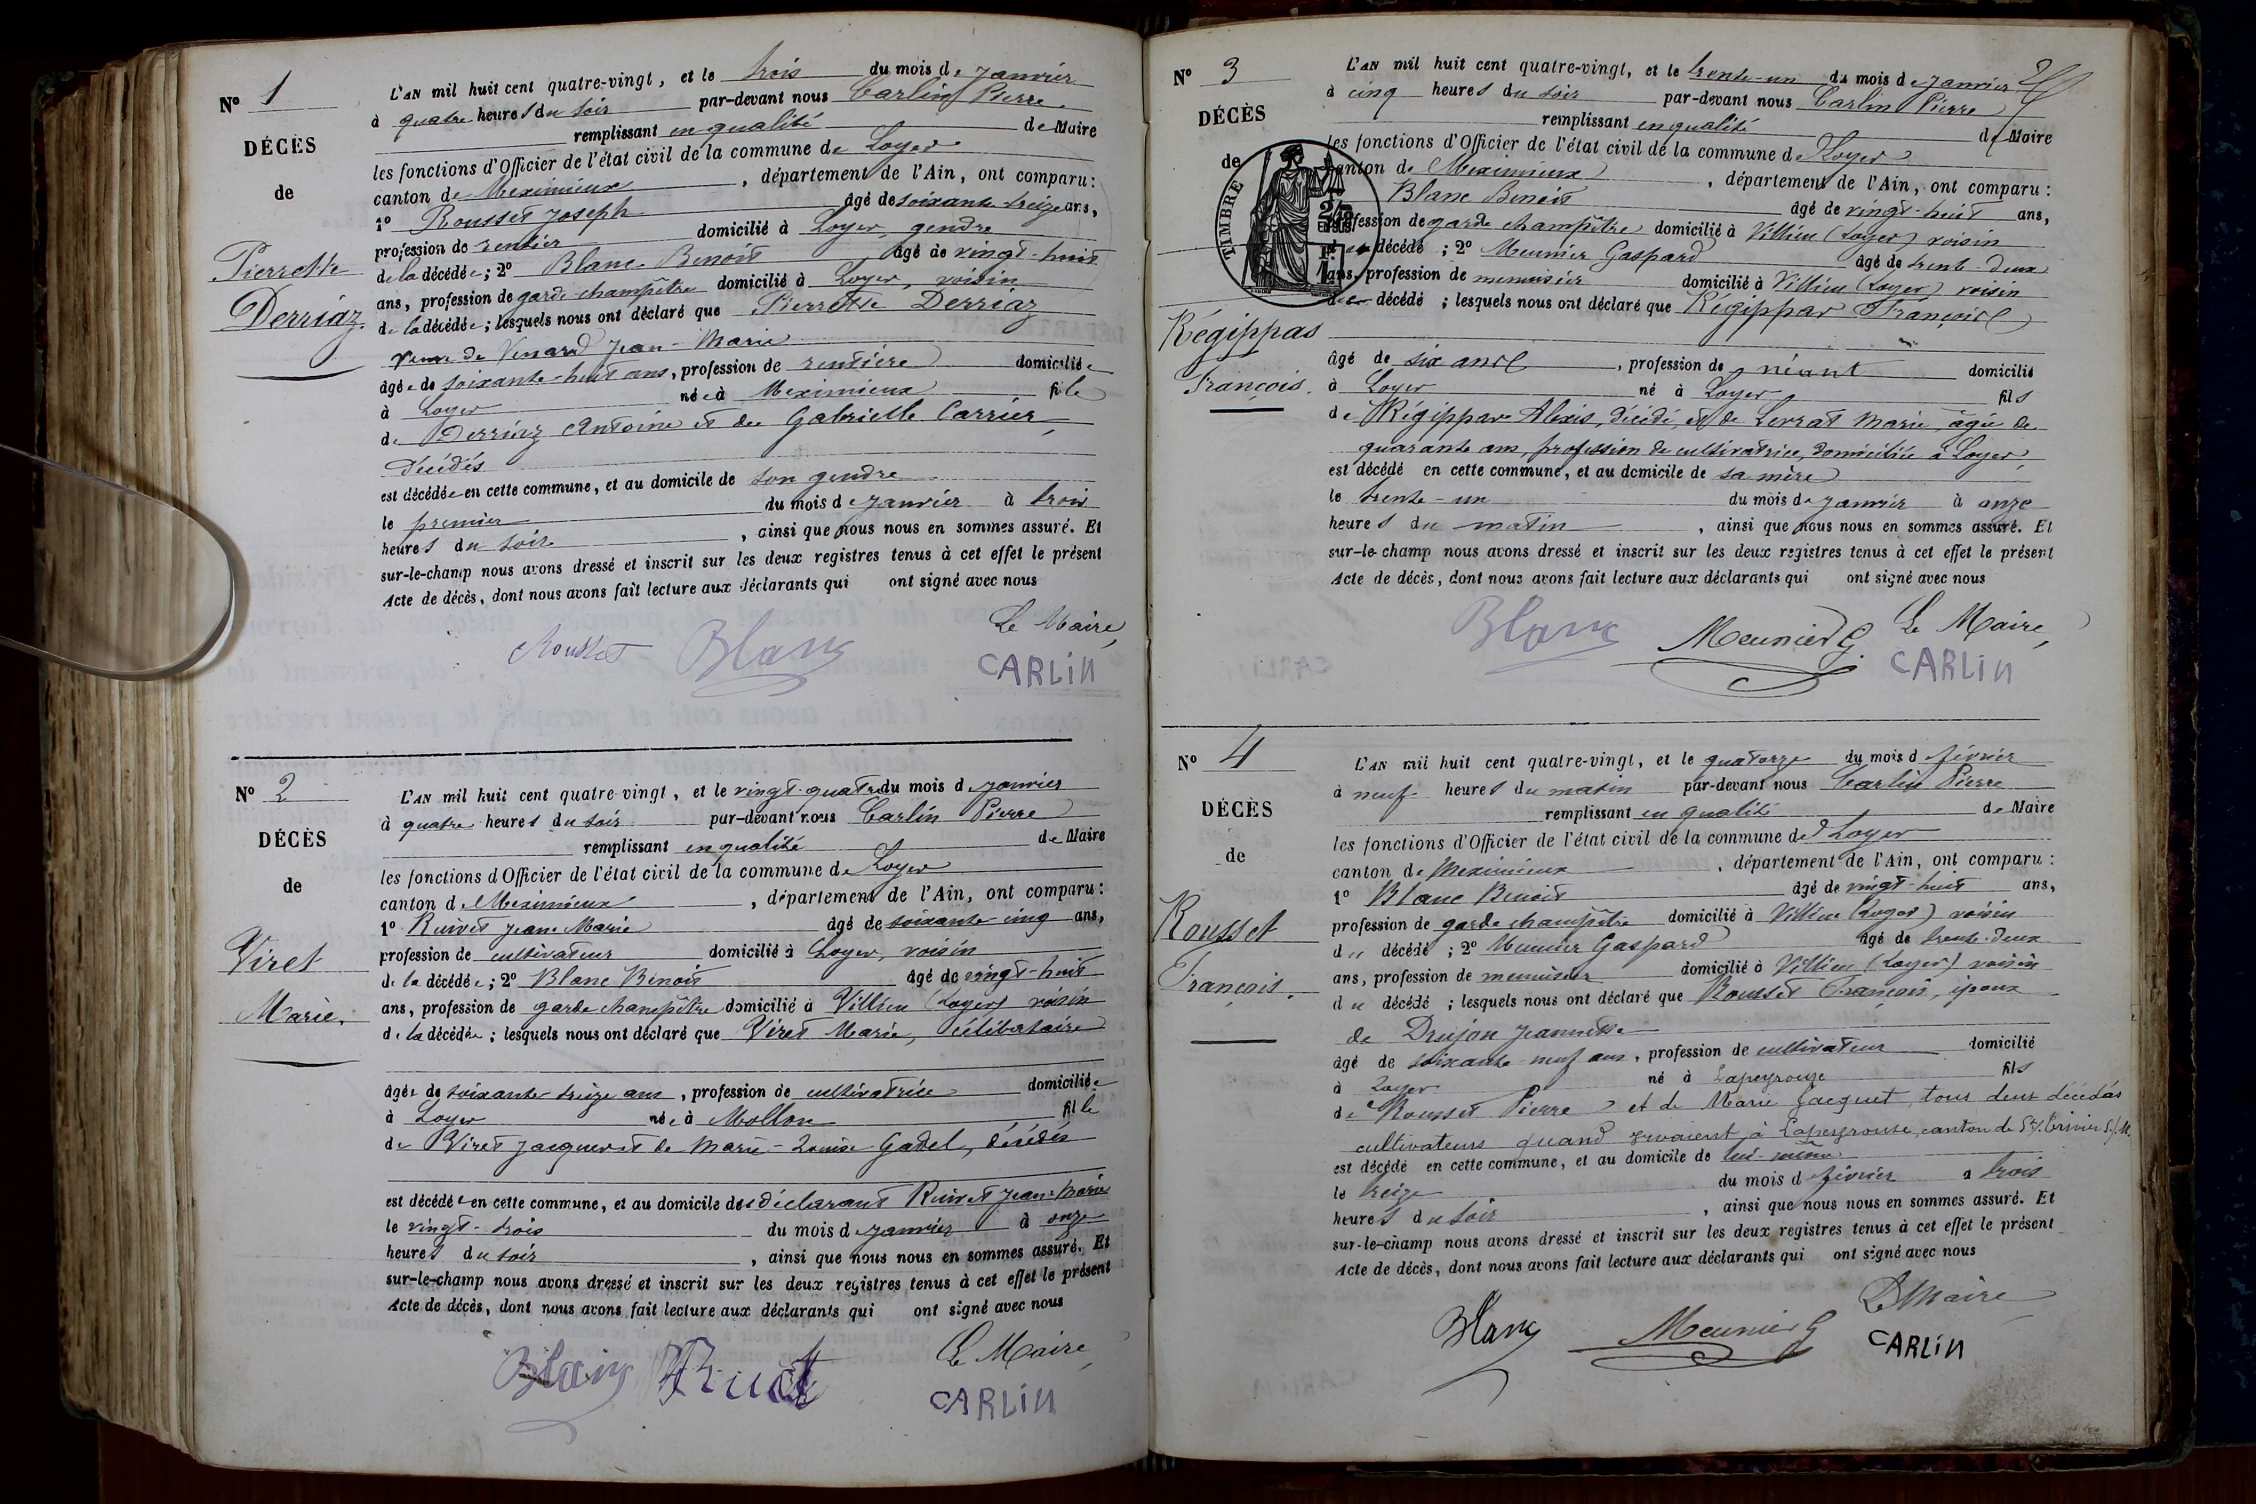 N° 1
DÉCÈS
de
Pierrette
Derriaz.
L'AN mil huit cent quatre-vingt, et le trois du mois de Janvier
à quatre heures du soir par-devant nous Carlin Pierre
remplissant en qualité de Maire
les fonctions d'Officier de l'état civil de la commune de Loyes
canton de Meximieux, département de l'Ain, ont comparu:
1° Rousset Joseph âgé de soixante treize ans,
profession de rentier domicilié à Loyes, gendre
de la décédée; 2° Blanc Benoit âgé de vingt-huit
ans, profession de garde champêtre domicilié à Loyes, voisin
de la décédée; lesquels nous ont déclaré que Pierrette Derriaz
veuve de Venard Jean-Marie
âgée de soixante-huit ans, profession de rentière domiciliée
à Loyes née à Meximieux fille
de Derriaz Antoine et de Gabrielle Carrier,
décédés
est décédée en cette commune, et au domicile de son gendre
le premier du mois de Janvier à trois
heures du soir, ainsi que nous nous en sommes assuré. Et
sur-le-champ nous avons dressé et inscrit sur les deux registres tenus à cet effet le présent
Acte de décès, dont nous avons fait lecture aux déclarants qui ont signé avec nous
Le Maire,
Rousset Blanc CARLIN
N° 2
DÉCÈS
de
Viret
Marie.
L'AN mil huit cent quatre-vingt, et le vingt-quatre du mois de Janvier
à quatre heures du soir par-devant nous Carlin Pierre
remplissant en qualité de Maire
les fonctions d'Officier de l'état civil de la commune de Loyes
canton de Meximieux, département de l'Ain, ont comparu:
1° Ruivet Jean Marie âgé de soixante cinq ans,
profession de cultivateur domicilié à Loyes, voisin
de la décédée; 2° Blanc Benoit âgé de vingt-huit
ans, profession de garde champêtre domicilié à Villieu (Loyes) voisin
de la décédée; lesquels nous ont déclaré que Viret Marie, célibataire
âgée de soixante treize ans, profession de cultivatrice domiciliée
à Loyes née à Mollon fille
de Viret Jacques et de Marie-Louise Gadel, décédés
est décédée en cette commune, et au domicile des déclarant Ruivet Jean-Marie
le vingt-trois du mois de Janvier à onze
heures du soir, ainsi que nous nous en sommes assuré. Et
sur-le-champ nous avons dressé et inscrit sur les deux registres tenus à cet effet le présent
Acte de décès, dont nous avons fait lecture aux déclarants qui ont signé avec nous
Le Maire,
Blanc CARLIN
N° 3
DÉCÈS
de
TIMBRE
Régippas
François.
L'AN mil huit cent quatre-vingt, et le trente-un du mois de Janvier
à cinq heures du soir par-devant nous Carlin Pierre
remplissant en qualité de Maire
les fonctions d'Officier de l'état civil de la commune de Loyes
canton de Meximieux, département de l'Ain, ont comparu:
Blanc Benoit âgé de vingt-huit ans,
profession de garde champêtre domicilié à Villieu (Loyes) voisin
décédé; 2° Meunier Gaspard âgé de trente-deux
ans, profession de menuisier domicilié à Villieu (Loyes) voisin
décédé; lesquels nous ont déclaré que Régippas François
âgé de six ans, profession de néant domicilié
à Loyes né à Loyes fils
de Régippas Alexis, décédé, et de Levrat Marie, âgée de
quarante ans, profession de cultivatrice, domiciliée à Loyes,
est décédé en cette commune, et au domicile de sa mère
le trente-un du mois de Janvier à onze
heures du matin, ainsi que nous nous en sommes assuré. Et
sur-le-champ nous avons dressé et inscrit sur les deux registres tenus à cet effet le présent
Acte de décès, dont nous avons fait lecture aux déclarants qui ont signé avec nous
Le Maire,
Blanc Meunier G. CARLIN
N° 4
DÉCÈS
de
Rousset
François.
L'AN mil huit cent quatre-vingt, et le quatorze du mois d février
à neuf heures du matin par-devant nous Carlin Pierre
remplissant en qualité de Maire
les fonctions d'Officier de l'état civil de la commune de Loyes
canton de Meximieux, département de l'Ain, ont comparu:
1° Blanc Benoit âgé de vingt-huit ans,
profession de garde champêtre domicilié à Villieu (Loyes) voisin
du décédé; 2° Meunier Gaspard âgé de trente-deux
ans, profession de menuisier domicilié à Villieu (Loyes) voisin
du décédé; lesquels nous ont déclaré que Rousset François, époux
de Drujon Jeannette
âgé de soixante-neuf ans, profession de cultivateur domicilié
à Loyes né à Lapeyrouze fils
de Rousset Pierre et de Marie Jacquet, tous deux décédés
cultivateurs quand vivaient à Lapeyrouse, canton de
est décédé en cette commune, et au domicile de lui-même
le treize du mois d février à trois
heures du soir, ainsi que nous nous en sommes assuré. Et
sur-le-champ nous avons dressé et inscrit sur les deux registres tenus à cet effet le présent
Acte de décès, dont nous avons fait lecture aux déclarants qui ont signé avec nous
Le Maire
Blanc Meunier G CARLIN